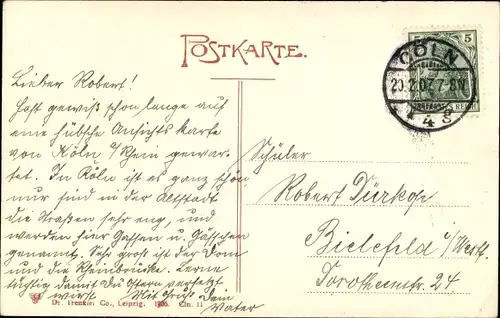 POSTKARTE.
CÖLN
20.2.07. 7-8N
* 1 4s
5 5
REICH
Lieber Robert!
Hast gewiß schon lange auf
eine hübsche Ansichtskarte
von Köln a/Rhein gewar-
tet. In Köln ist es ganz schön,
nur sind in der Altstadt
die Straßen sehr eng, und
werden hier Gassen u. Gäßchen
genannt. Sehr groß ist der Dom
und die Rheinbrücke. Lerne
tüchtig damit Du Ostern versetzt
wirst. Mit Gruß Dein
Vater
Schüler
Robert Dürkop
Bielefeld i/Westf.
Dorotheenstr. 24
Dr. Trenkler Co., Leipzig. 1906. Cln. 11